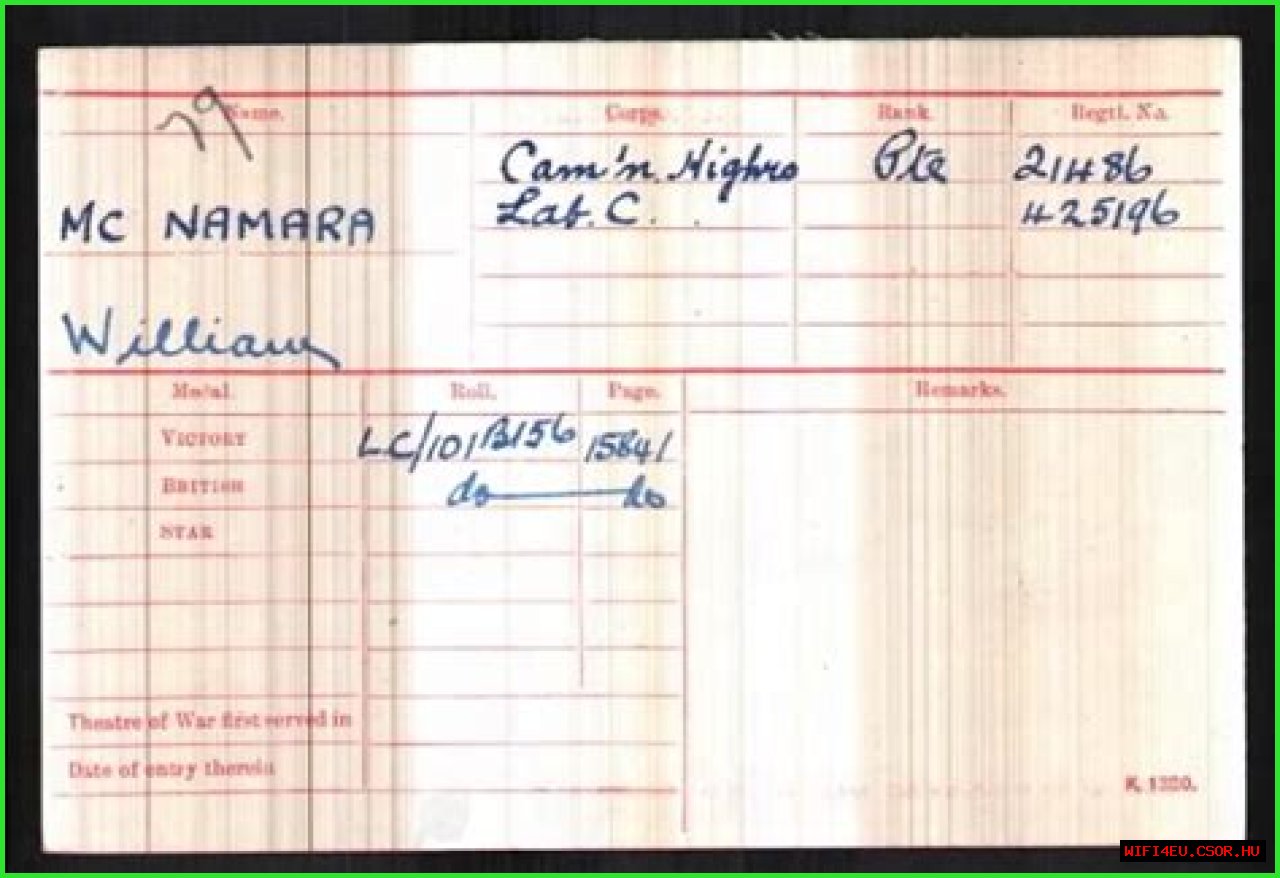 79
Name. Corps. Rank. Regtl. No.
Cam'n. Highrs Pte 21486
Mc NAMARA Lab. C. 425196
William
Medal. Roll. Page. Remarks.
VICTORY LC/101B156 15841
BRITISH do do
STAR
Theatre of War first served in
Date of entry therein
K. 1380.
WIFI4EU.CSOR.HU